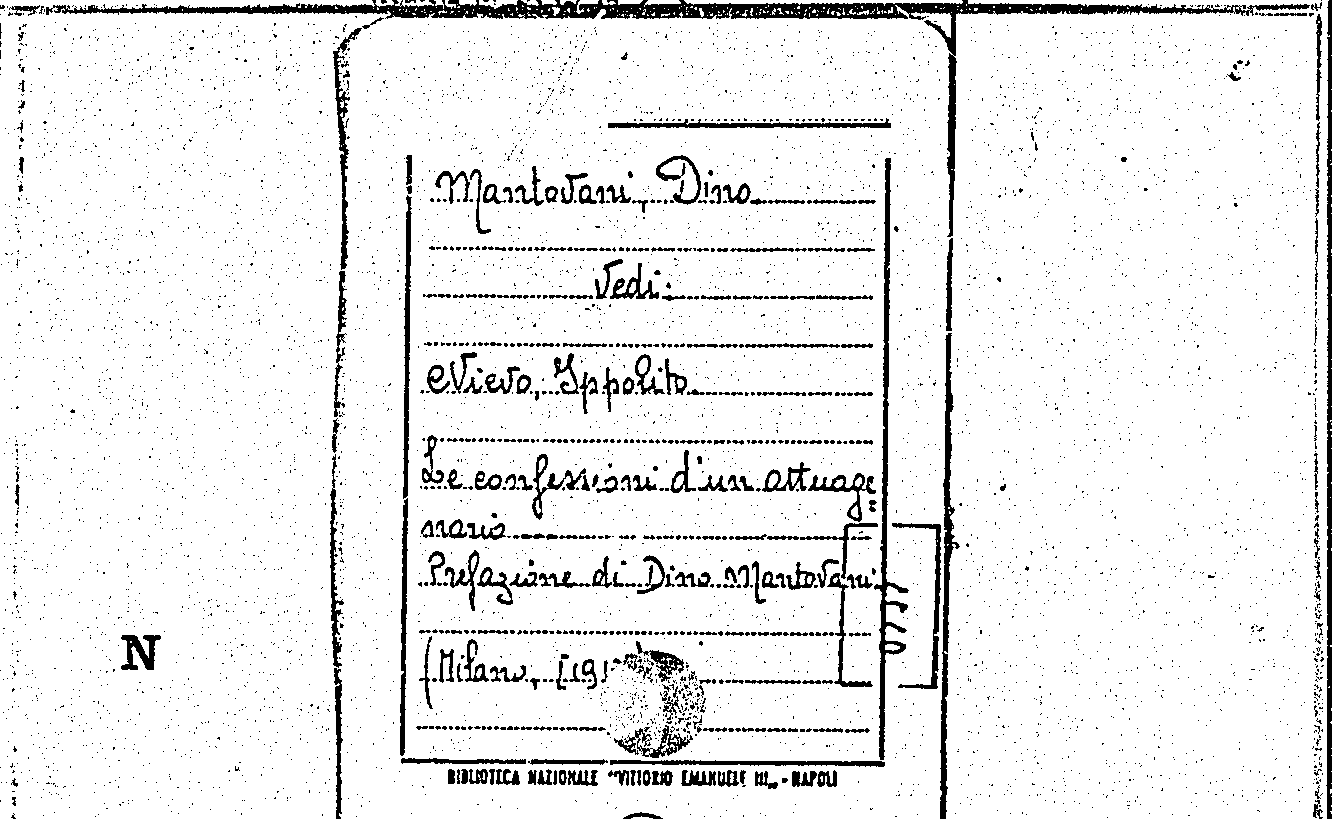 Mantovani, Dino
Vedi:
Nievo, Ippolito.
Le confessioni d'un ottuage=
nario
Prefazione di Dino Mantovani
(Milano, [191
N
BIBLIOTECA NAZIONALE "VITTORIO EMANUELE III„ - NAPOLI